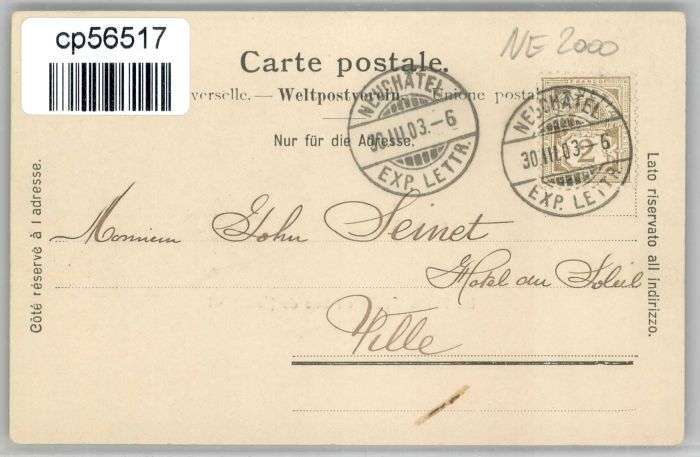 cp56517
NE 2000
Carte postale.
verselle. — Weltpostverein. — Unione posta
Nur für die Adresse.
NEUCHÂTEL
30.III.03.–6
EXP. LETTR.
NEUCHÂTEL
30.III.03.–6
EXP. LETTR.
2
Côté réservé à l adresse.
Lato riservato all indirizzo.
Monsieur John Seinet
Hotel du Soleil
Ville